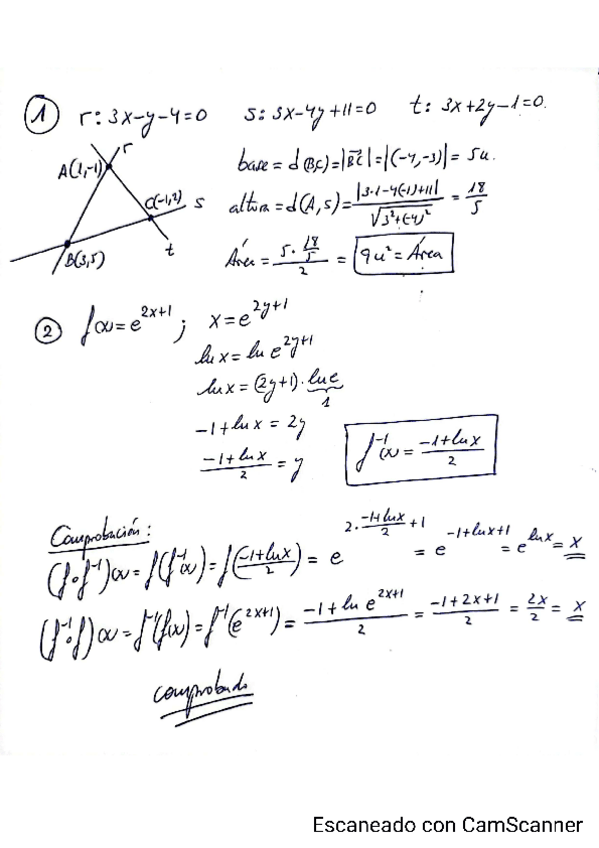 1 r: 3x-y-4=0 s: 3x-4y+11=0 t: 3x+2y-1=0.
r
A(1,-1) base = d(BC) = |BC| = |(-4,-3)| = 5u.
C(-1,2) s altura = d(A,s) = |3·1-4(-1)+11| / √3²+(-4)² = 18/5
B(3,5) t Área = 5·18/5 / 2 = 9u² = Área
2 f(x) = e^{2x+1} ; x = e^{2y+1}
ln x = ln e^{2y+1}
ln x = (2y+1)·ln e
1
-1+ln x = 2y
-1+ln x / 2 = y f⁻¹(x) = -1+ln x / 2
Comprobación:
(f∘f⁻¹)(x) = f(f⁻¹(x)) = f(-1+ln x / 2) = e^{2·(-1+ln x)/2 +1} = e^{-1+ln x+1} = e^{ln x} = x
(f⁻¹∘f)(x) = f⁻¹(f(x)) = f⁻¹(e^{2x+1}) = -1+ln e^{2x+1} / 2 = -1+2x+1 / 2 = 2x/2 = x
comprobado
Escaneado con CamScanner